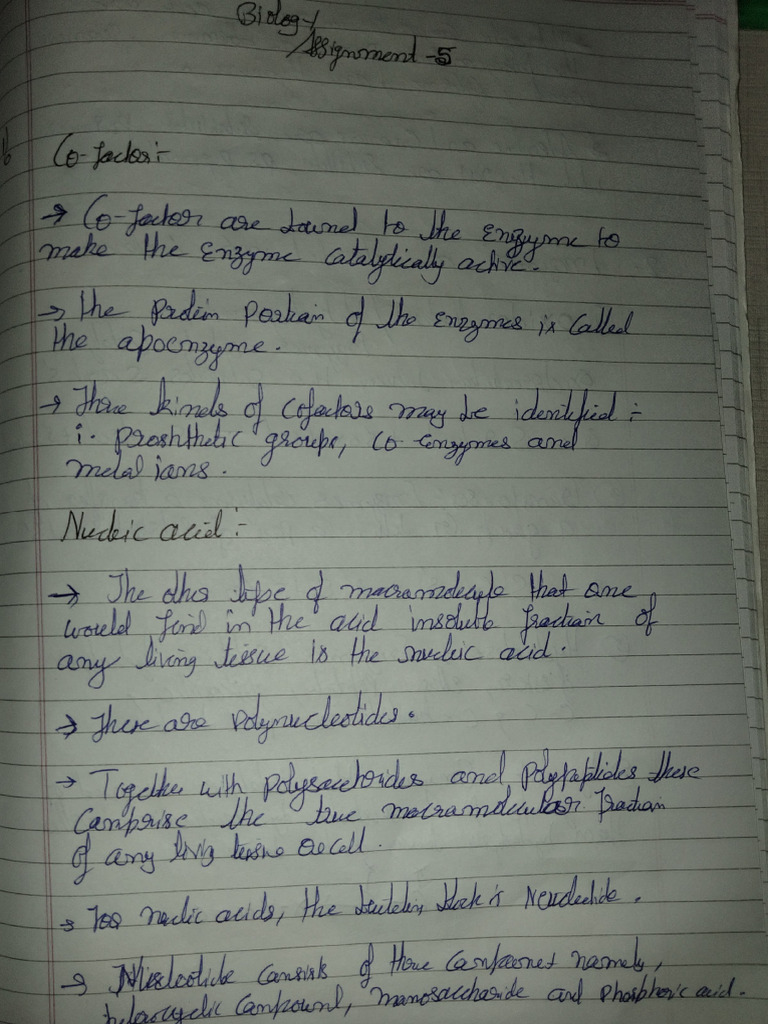 Biology
Assignment -5
Co-factor:-
→ Co-factor are bound to the enzyme to
make the enzyme catalytically active.
→ the protein portion of the enzymes is called
the apoenzyme.
→ Three kinds of cofactors may be identified :-
i. Proshthetic groups, co-enzymes and
metal ions.
Nucleic acid :-
→ The other type of macromolecule that one
would find in the acid insoluble fraction of
any living tissue is the nucleic acid.
→ These are polynucleotides.
→ Together with polysaccharides and polypeptides these
comprise the true macromolecular fraction
of any living tissue or cell.
→ For nucleic acids, the building block is Neucleotide.
→ Nucleotide consists of three component namely,
heterocyclic compound, monosaccharide and phosphoric acid.